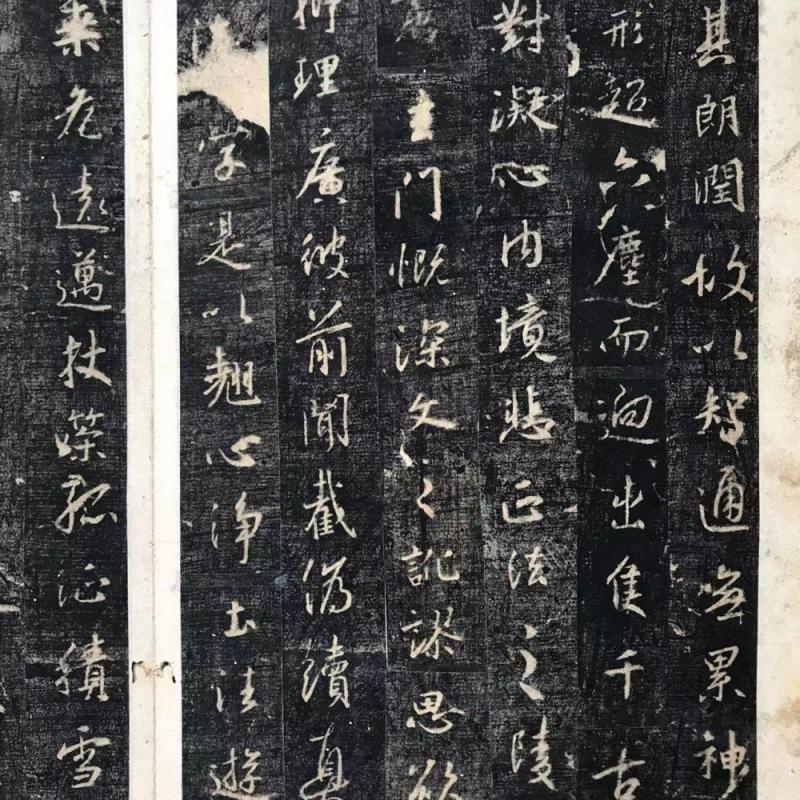 其朗潤故以智通無累神
形超六塵而迥出隻千古
對凝心內境悲正法之陵
慮玄門慨深文之訛謬思欲
析理廣彼前聞截偽續真
學是以翹心淨土法遊
乘危遠邁杖策孤征積雪